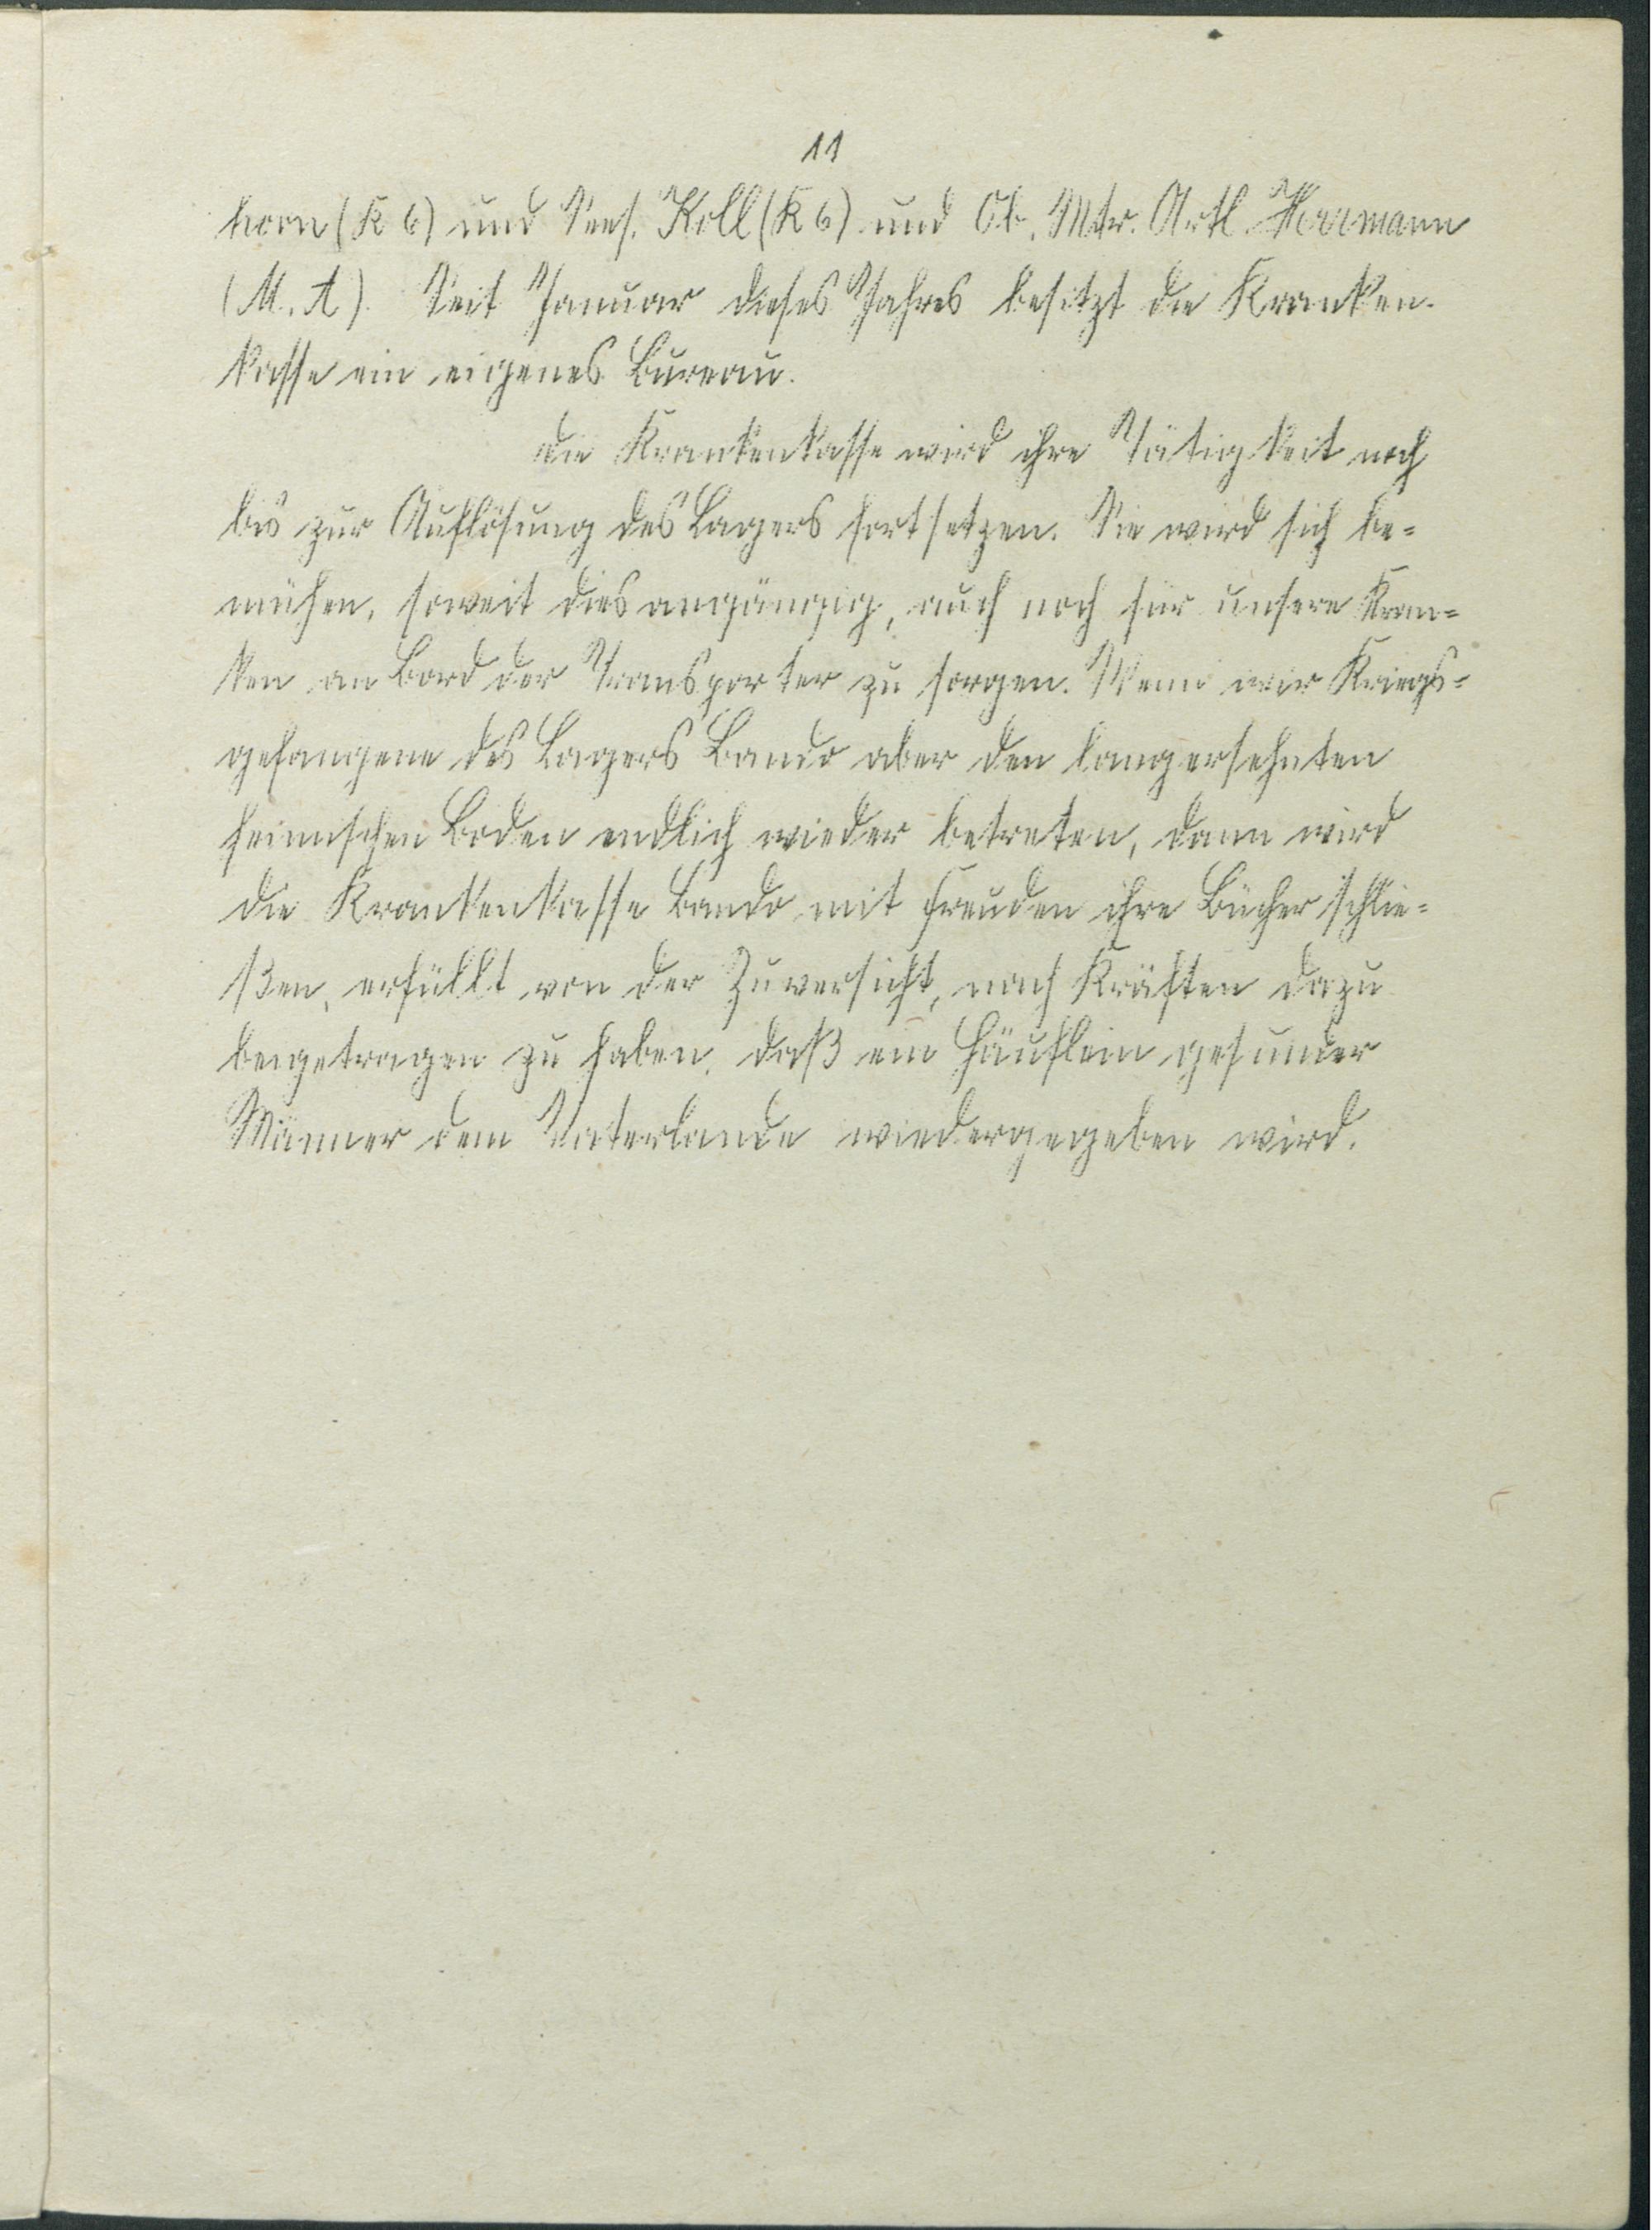 11
horn (K 6) und Sees. Koll (K 6) und Ob. Mtr. Artl. Herrmann
(M. A). Seit Januar dieses Jahres besitzt die Kranken-
kasse ein eigenes Bureau.
Die Krankenkasse wird ihre Tätigkeit noch
bis zur Auflösung des Lagers fortsetzen. Sie wird sich be-
mühen, soweit dies angängig, auch noch für unsere Kran-
ken an Bord der Transporter zu sorgen. Wenn wir Kriegs-
gefangene des Lagers Bando aber den langersehnten
heimischen Boden endlich wieder betreten, dann wird
die Krankenkasse Bando mit Freuden ihre Bücher schlie-
ßen, erfüllt von der Zuversicht, nach Kräften dazu
beigetragen zu haben, daß ein Häuflein gesunder
Männer dem Vaterlande wiedergegeben wird.